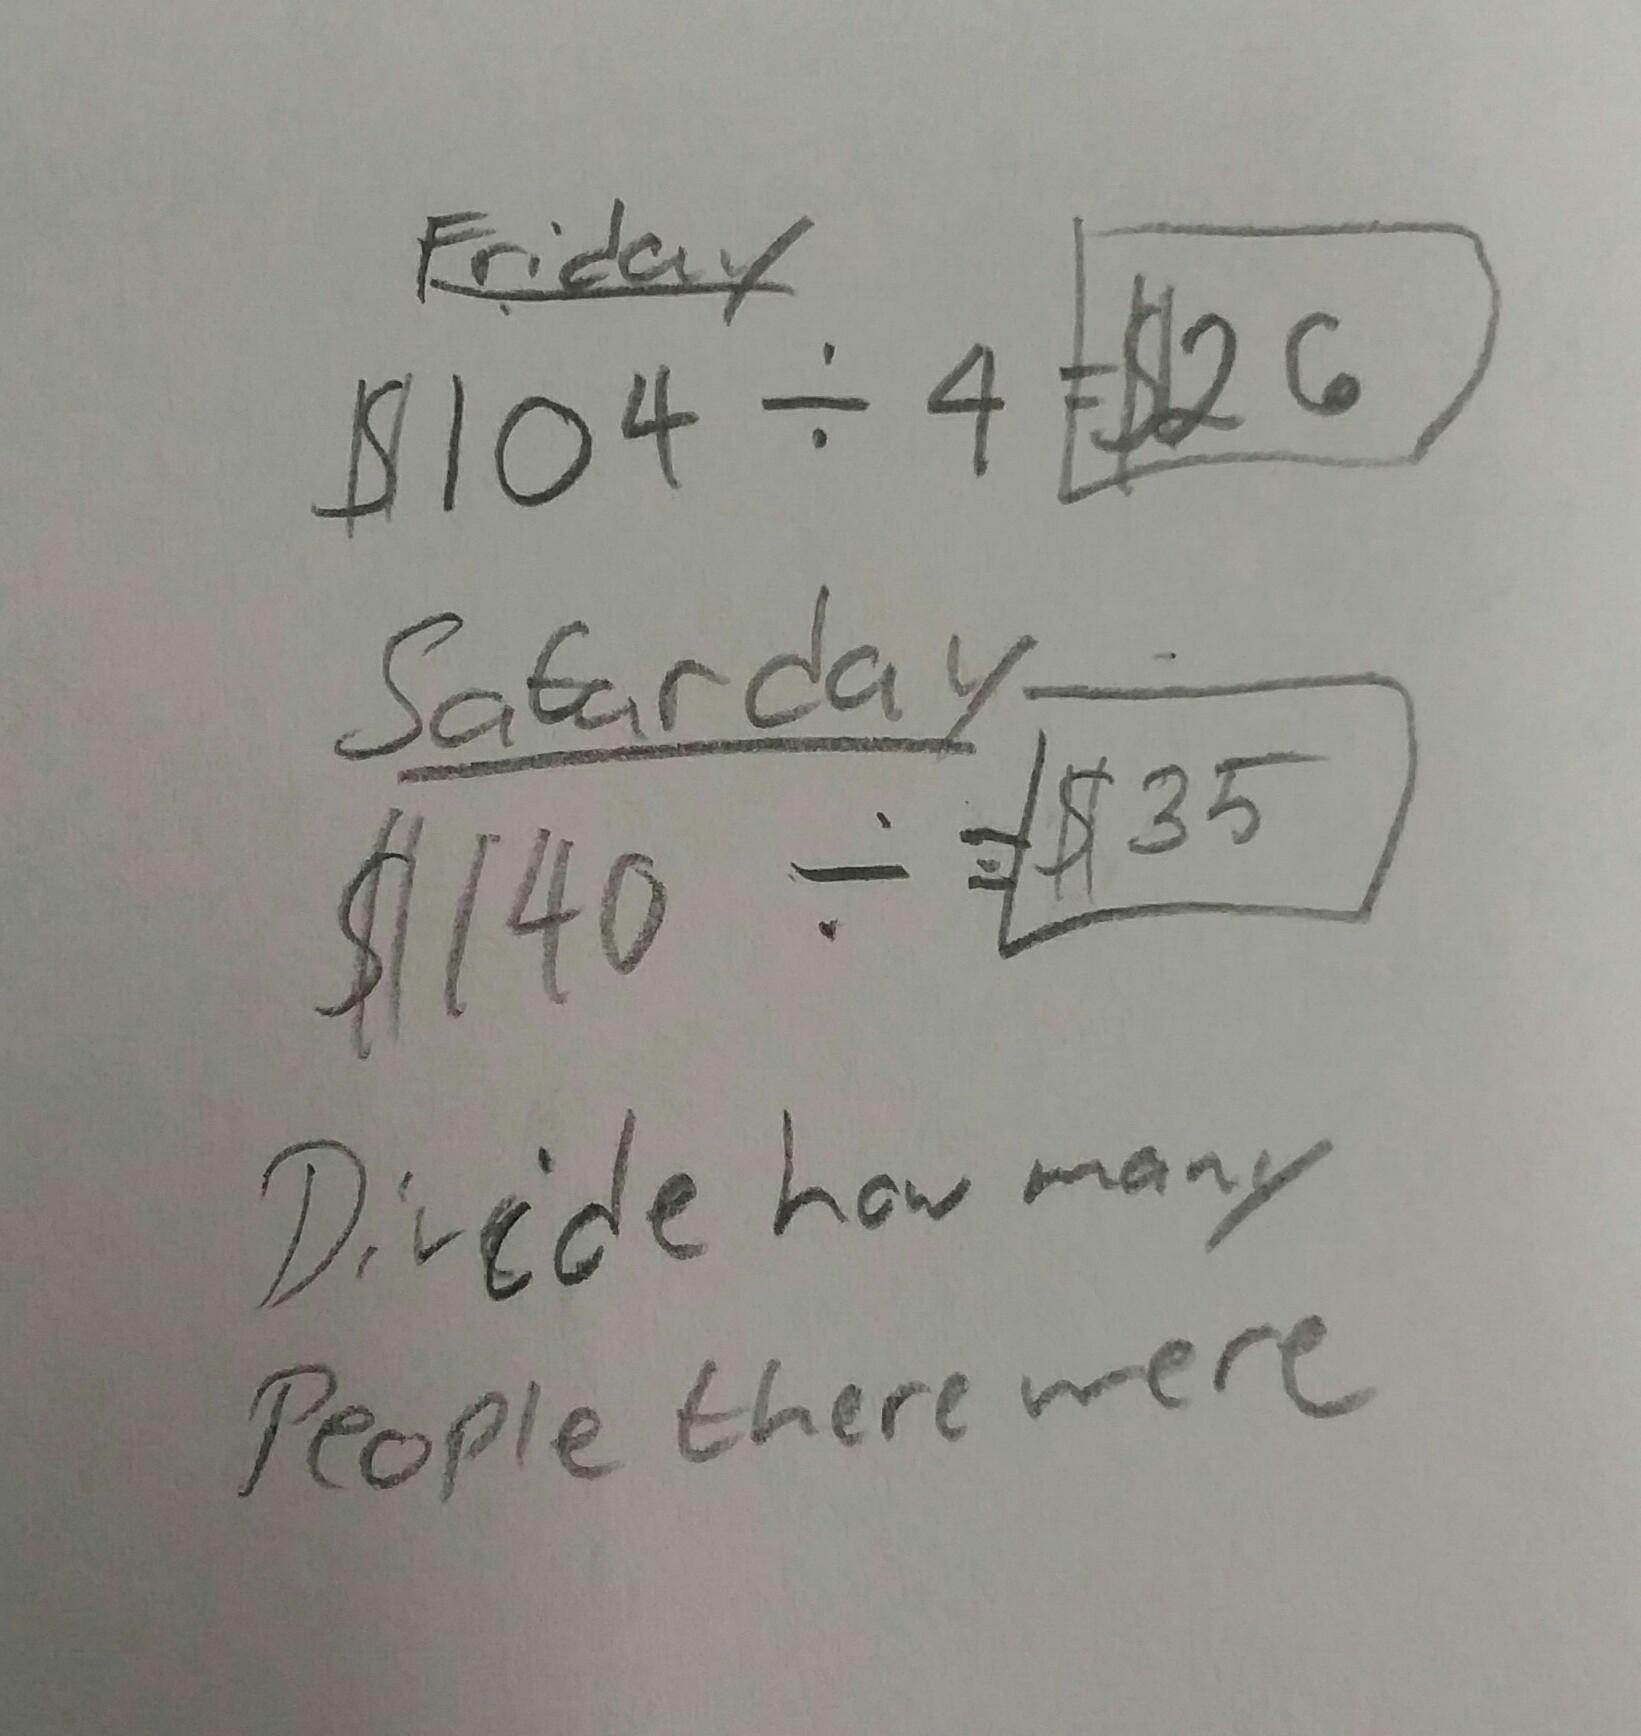 Friday
$104 ÷ 4 = $26
Saturday
$140 ÷ = $35
Divide how many
People there were